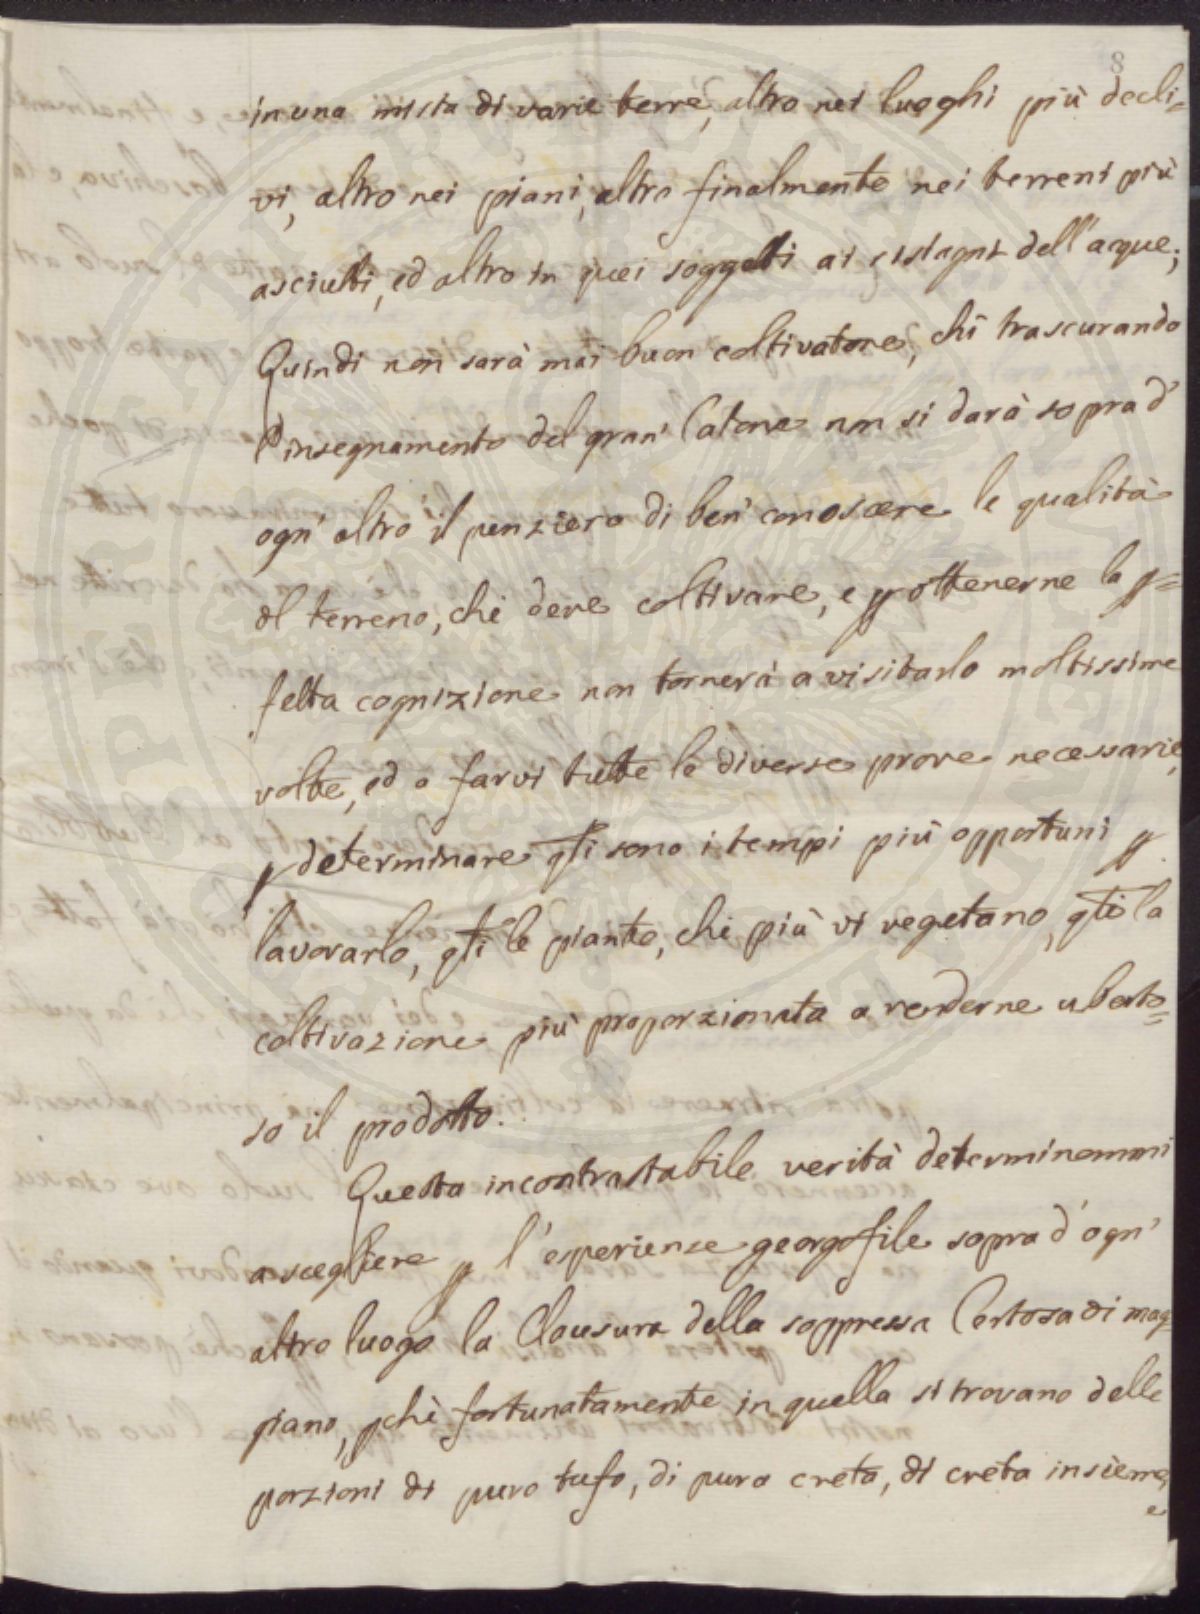 8
in una mista di varie terre, altro nei luoghi più decli=
vi, altro nei piani, altro finalmente nei terreni più
asciutti, ed altro in quei soggetti ai ristagni dell'acque;
Quindi non sarà mai buon coltivatore, chi trascurando
l'insegnamento del gran' Catone non si darà sopra d'
ogn' altro il penziero di ben' conoscere le qualità
del terreno, che deve coltivare, e p ottenerne la p=
fetta cognizione non tornerà a visitarlo moltissime
volte, ed a farvi tutte le diverse prove necessarie,
p determinare qti sono i tempi più opportuni p
lavorarlo, qti le piante, che più vi vegetano, qto la
coltivazione più proporzionata a renderne uberto=
so il prodotto.
Questa incontrastabile verità determinommi
a scegliere p l'esperienze georgofile sopra d'ogn'
altro luogo la Clausura della soppressa Certosa di mag=
giano, pchè fortunatamente in quella si trovano delle
porzioni di puro tufo, di pura creta, di creta insieme,
e